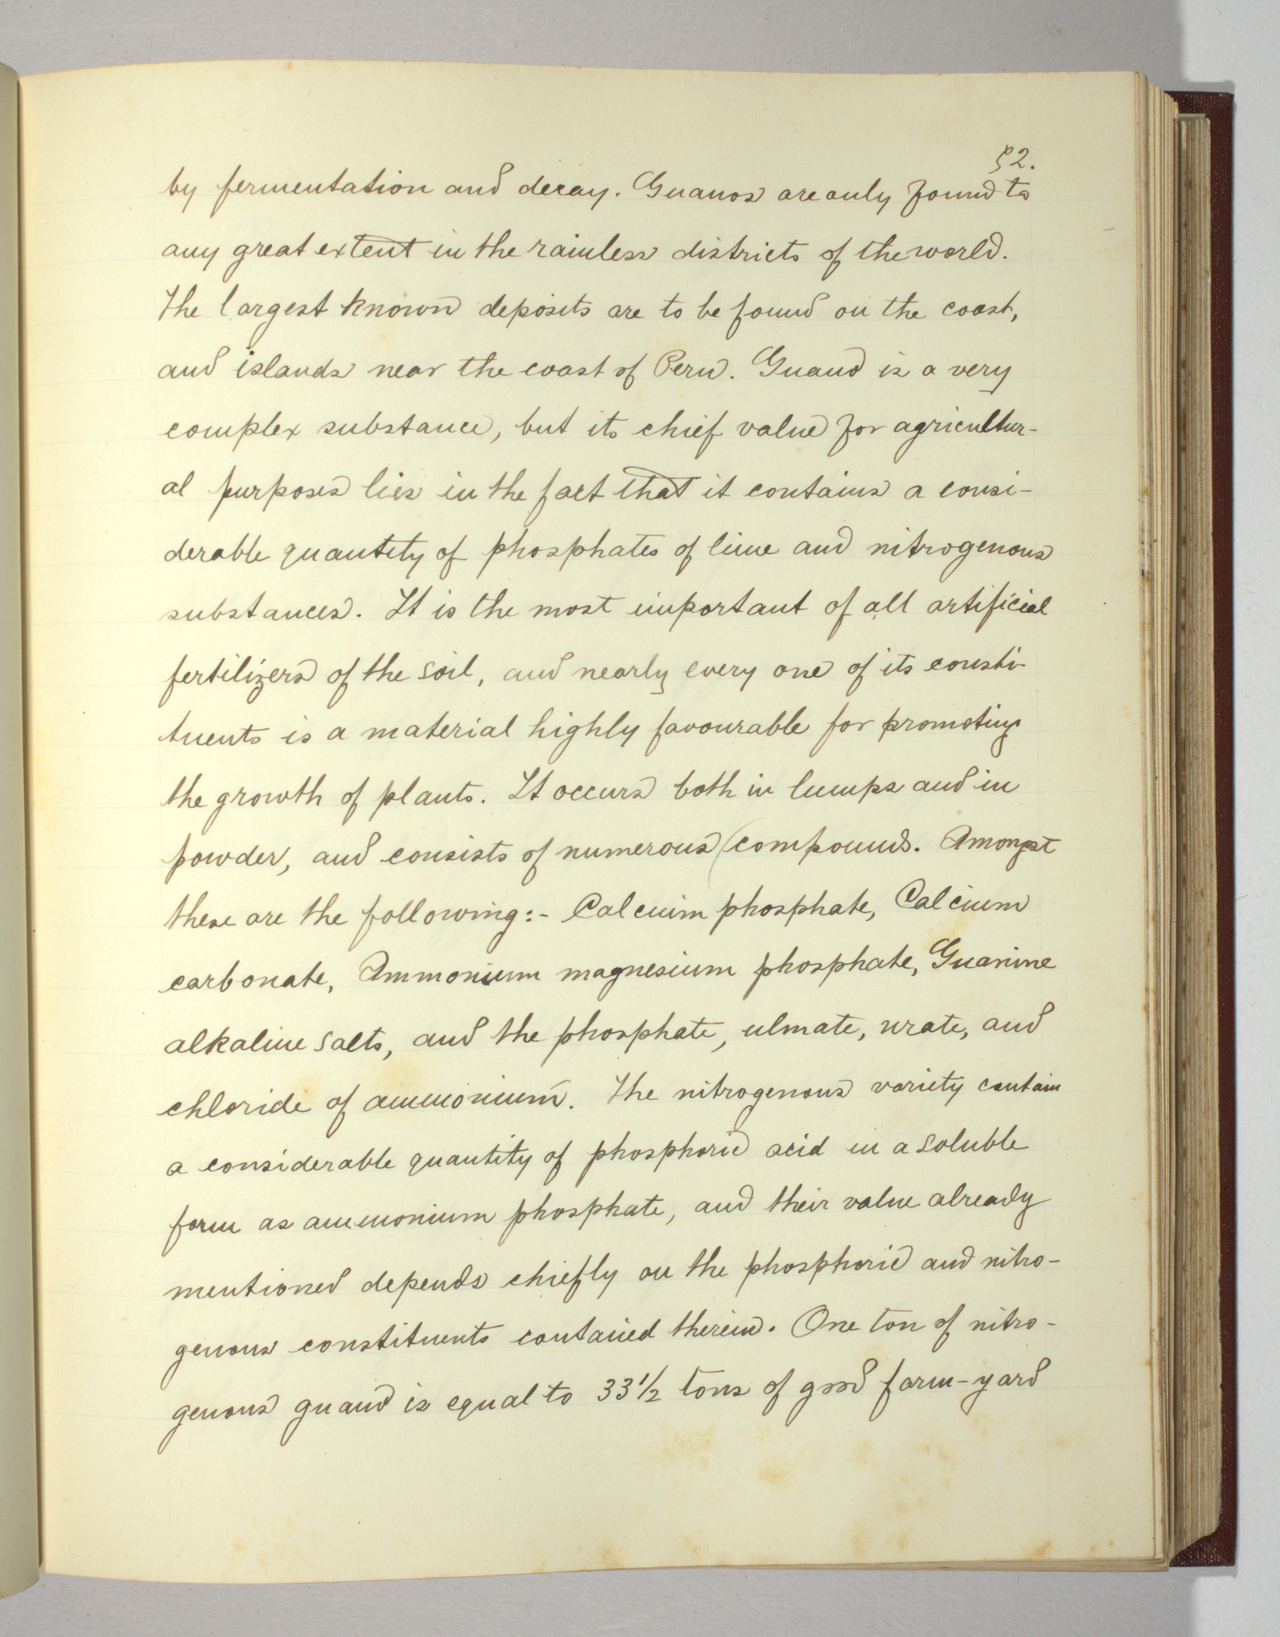 52.
by fermentation and decay. Guanos are only found to
any great extent in the rainless districts of the world.
The largest known deposits are to be found on the coast,
and islands near the coast of Peru. Guano is a very
complex substance, but its chief value for agricultur-
al purposes lies in the fact that it contains a consi-
derable quantity of phosphates of lime and nitrogenous
substances. It is the most important of all artificial
fertilizers of the soil, and nearly every one of its consti-
tuents is a material highly favourable for promoting
the growth of plants. It occurs both in lumps and in
powder, and consists of numerous (compounds. Amongst
these are the following:- Calcium phosphate, Calcium
carbonate, Ammonium magnesium phosphate, Guanine
alkaline salts, and the phosphate, ulmate, urate, and
chloride of ammonium. The nitrogenous variety contain
a considerable quantity of phosphoric acid in a soluble
form as ammonium phosphate, and their value already
mentioned depends chiefly on the phosphoric and nitro-
genous constituents contained therein. One ton of nitro-
genous guano is equal to 33 1/2 tons of good farm-yard